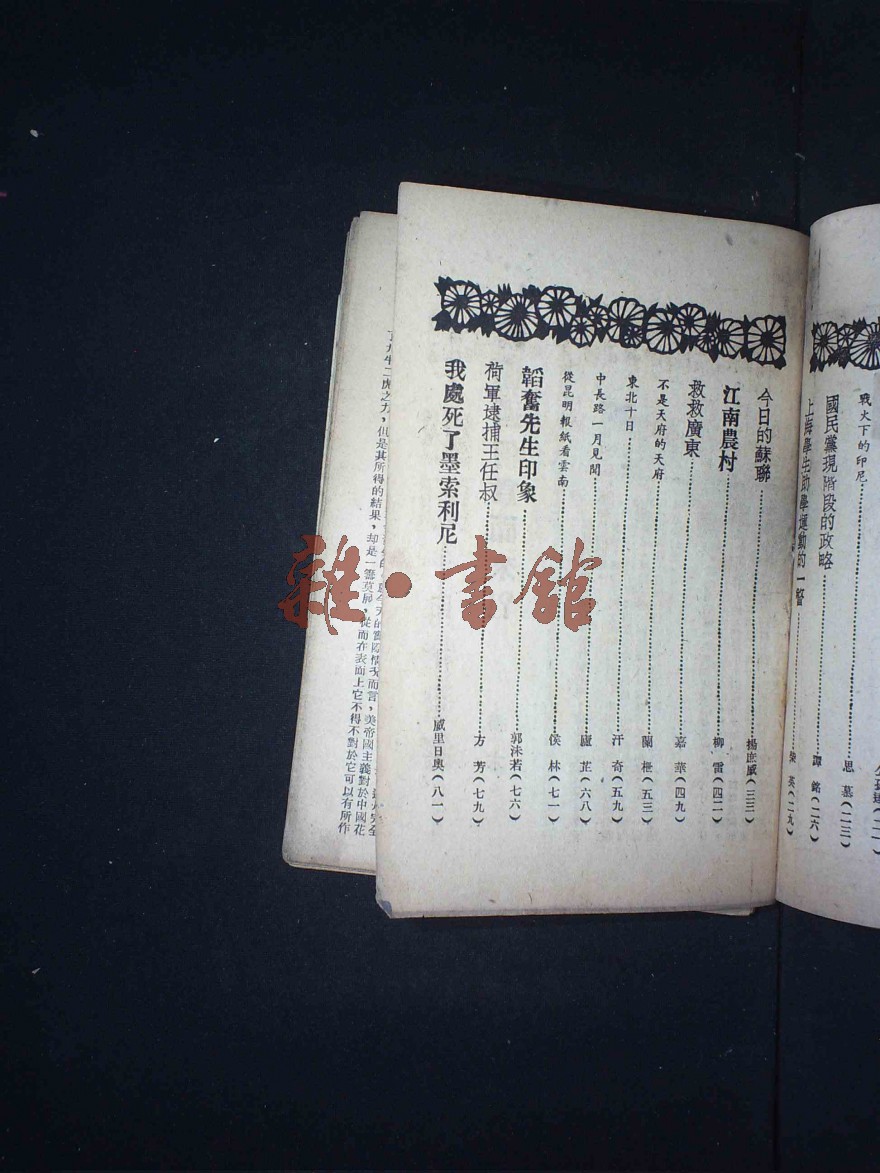 戰火下的印尼………思慕（二三）
國民黨現階段的政略………譚銘（二六）
上海學生助學運動的一瞥………榮英（二九）
今日的蘇聯………楊庶威（三三）
江南農村………柳雷（四二）
救救廣東………嘉華（四九）
不是天府的天府………蘭櫆（五三）
東北十日………汗奇（五九）
中長路一月見聞………廬芷（六八）
從昆明報紙看雲南………侯林（七一）
韜奮先生印象………郭沫若（七六）
荷軍逮捕王任叔………方芳（七九）
我處死了墨索利尼………威里日奧（八一）
美帝國主義對於中國花
從而在表面上它不得不對於它可以有所作
九牛二虎之力，但是其所得的結果，却是一籌莫展，
雜·書館